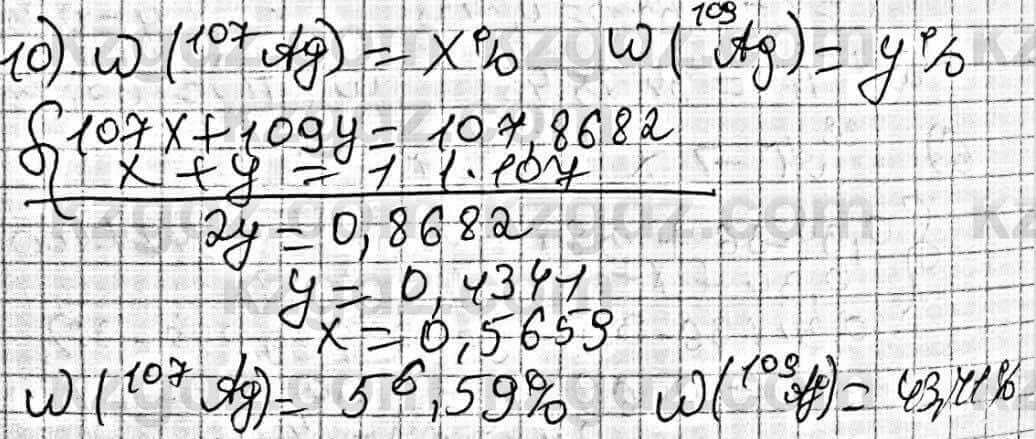 10) W (¹⁰⁷Ag) = X% W (¹⁰⁹Ag) = y%
{107X + 109y = 107,8682
x + y = 1 1·107
2y = 0,8682
y = 0,4341
x = 0,5659
W (¹⁰⁷Ag) = 56,59% W (¹⁰⁹Ag) = 43,41%